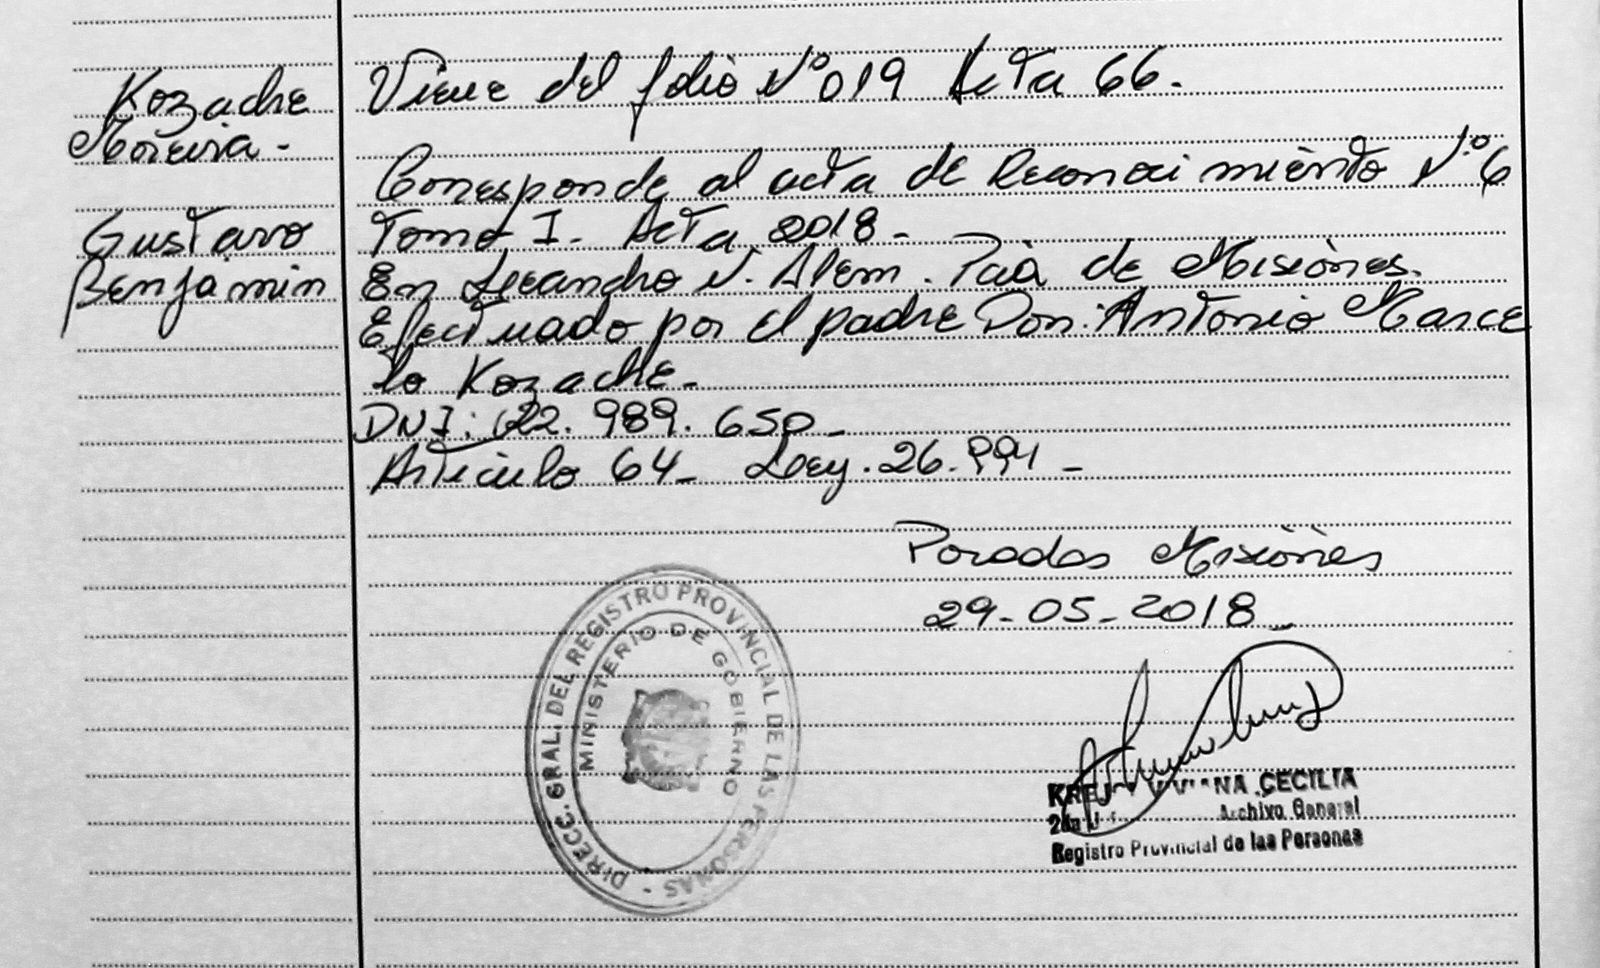 Kozache
Moreira -
Gustavo
Benjamin
Viene del folio Nº 019 Acta 66.
Corresponde al acta de Reconocimiento Nº 6
Tomo I. Acta 2018 -
En Leandro N. Alem. Pcia de Misiónes.
Efectuado por el padre Don: Antonio Marce
lo Kozache -
DNI: 22. 989. 650 -
Articulo 64 - Ley. 26.994 -
Posadas Misiónes
29-05-2018 -
DIRECC. GRAL. DEL REGISTRO PROVINCIAL DE LAS PERSONAS -
MINISTERIO DE GOBIERNO
CECILIA
Archivo General
Registro Provincial de las Personas